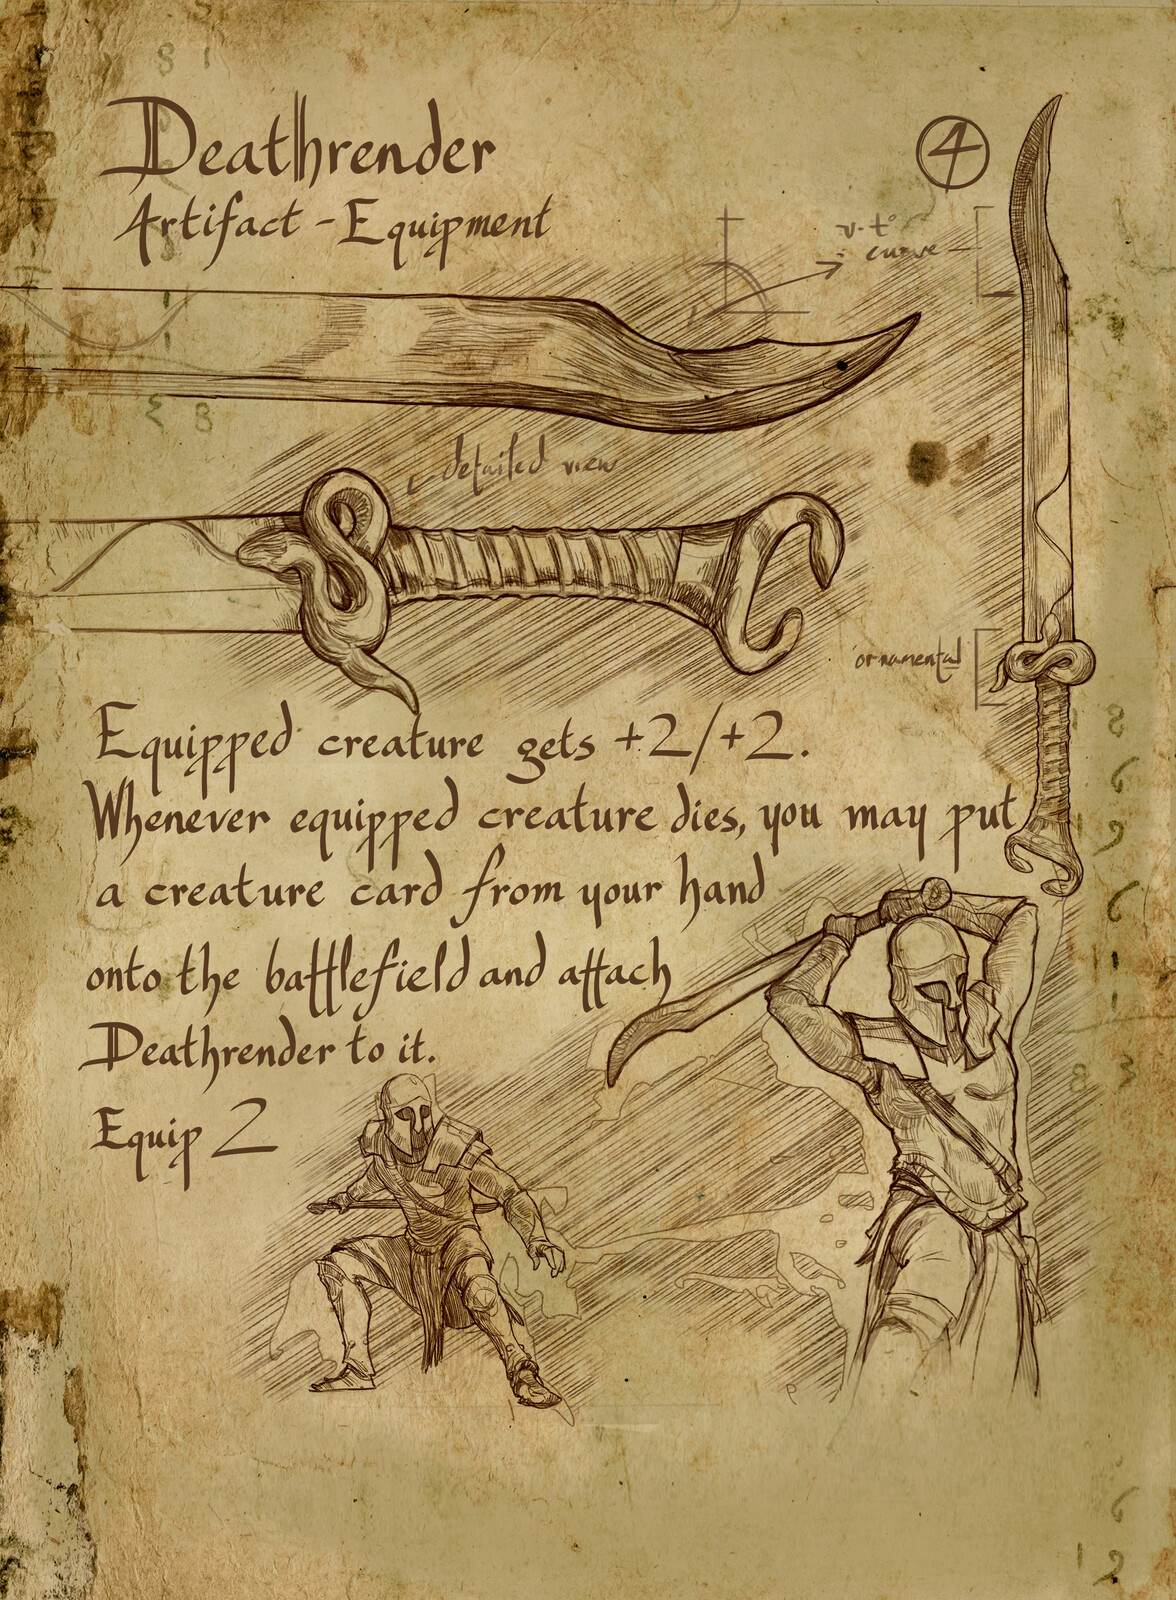 Deathrender
4
Artifact - Equipment
curve
detailed view
ornamental
Equipped creature gets +2/+2.
Whenever equipped creature dies, you may put
a creature card from your hand
onto the battlefield and attach
Deathrender to it.
Equip 2